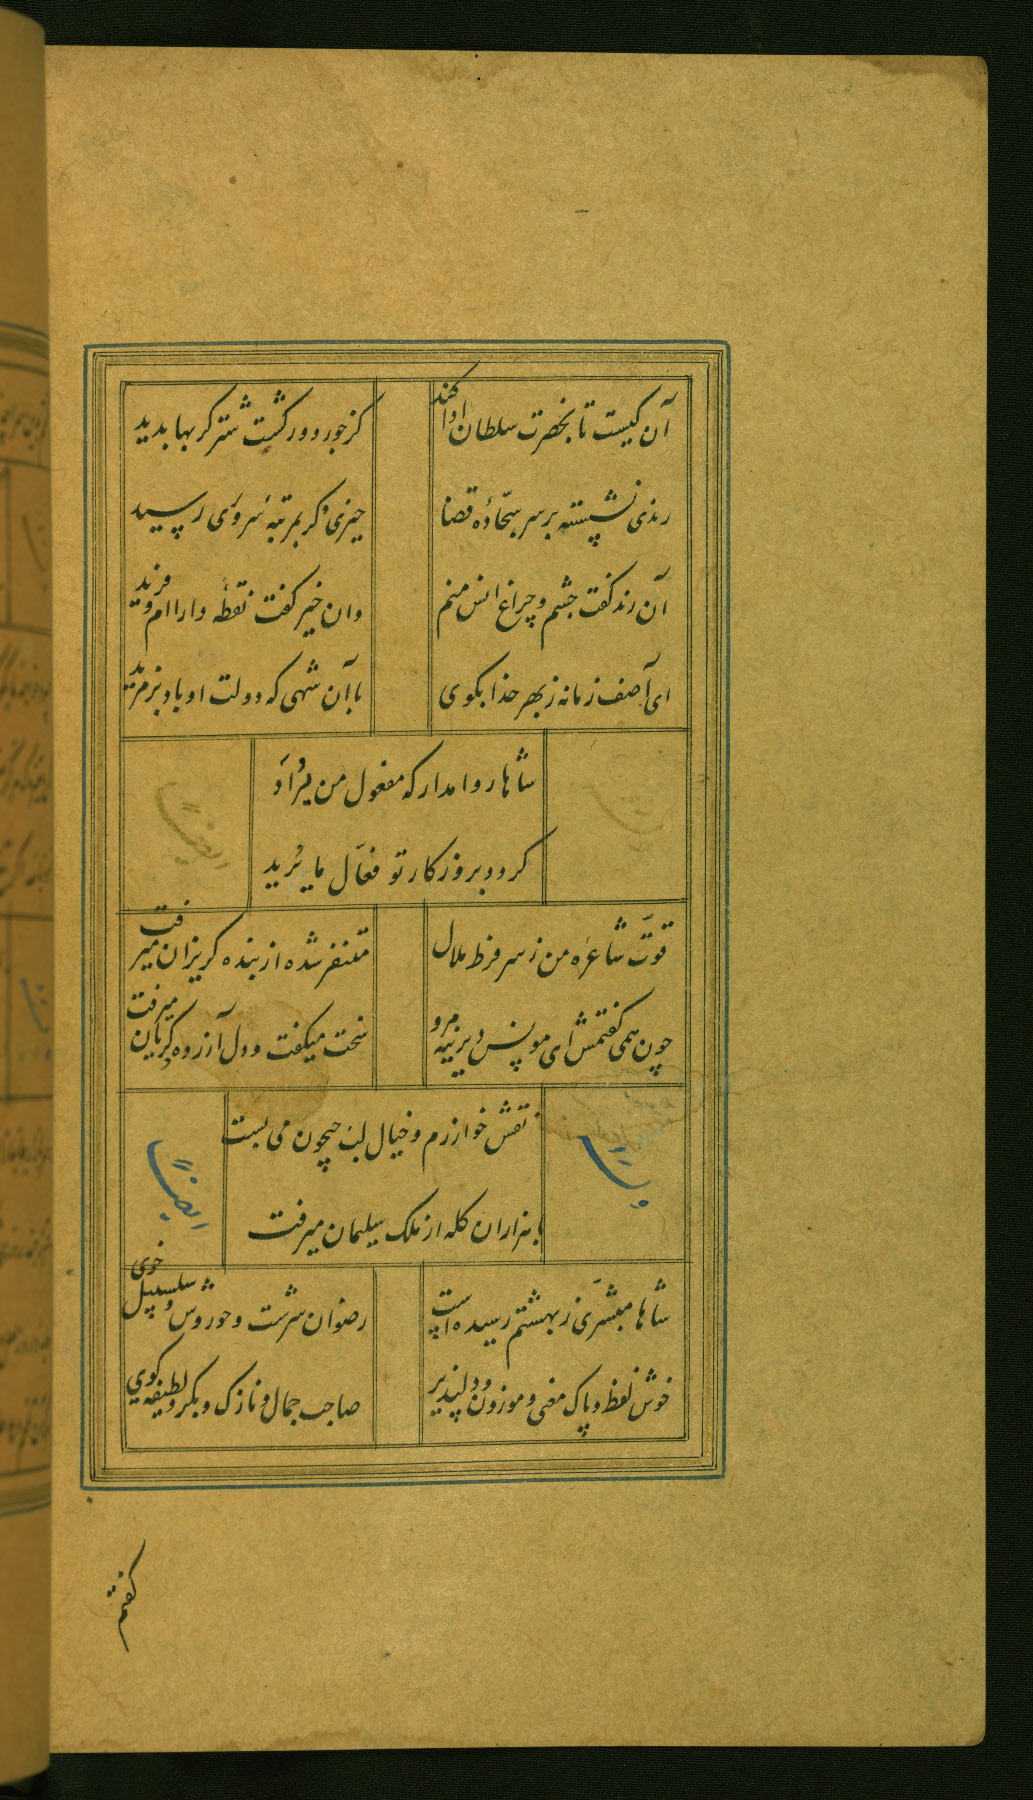 آن کیست تا بحضرت سلطان ادا کند
کز جور دور گشت شتر گربها بدید
رندی نشسته بر سر سجّادهٔ قضا
حیزی دگر بمرتبهٔ سروری رسید
آن رند گفت چشم و چراغ انس منم
وان حیز گفت نقطهٔ دارا ام و فرید
ای آصف زمانه ز بهر خدا بگوی
با آن شهی که دولت او باد بر مزید
شاها روا مدار که مفعول من یُراَد
گردد بروزکار تو فعّال ما یُرید
قوّت شاعرهٔ من ز سر فرط ملال
متنفر شده از بنده گریزان میرفت
نقش خوارزم و خیال لب جیحون می بست
با هزاران گله از ملک سلیمان میرفت
چون همی گفتمش ای مونس دیرینه مرو
سخت میگفت و دل آزرده و گریان میرفت
ایضاً
شاها مبشّری ز بهشتم رسیده است
رضوان سرشت و حوروش و سلسبیل خوی
خوش لفظ و پاک معنی و موزون و دلپذیر
صاحب جمال و نازک و بکر و لطیفه گوی
گفتم